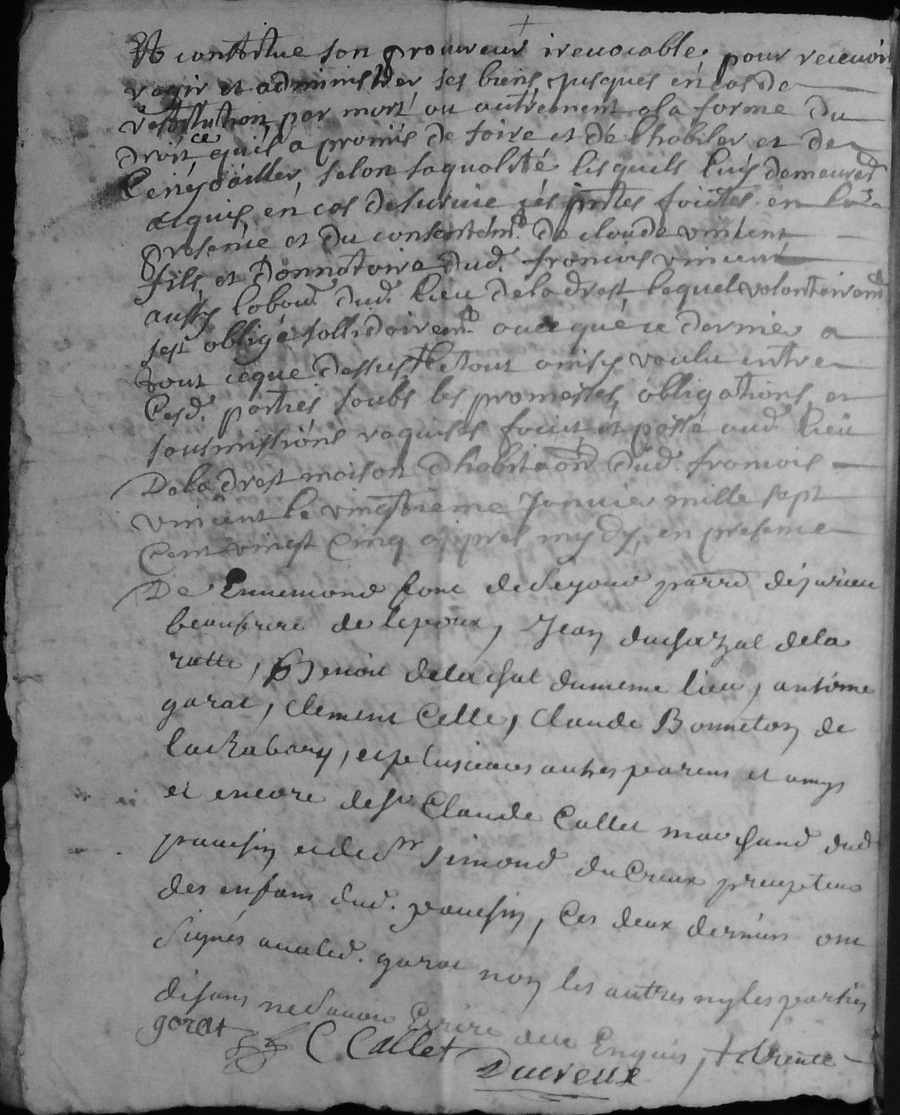 Et constitue son procureur irevocable pour recevoir
regir et administrer ses biens jusques en cas de
restitution par mort ou autrement a la forme du
droit ce qu'il a promis de faire et de l'habiller et de
selon sa qualité lesquels luy demeureront
acquis en cas de survie ses pntes faittes en la
presence et du consentemt de claude vincent
fils et donnataire dud. francois vincent
aussy labour. dud. lieu de ladrest, lequel volontairemt
sest obligé sollidairemt avec que ce dernier a
tout ceque dessus le tout ainsy voulu entre
lesd. parties soubs les promesses, obligations, et
sousmissions requises faict et passé aud. lieu
De la drest maison d'habitaon dud. francois
vincent le vingtieme Janvier mille sept
Cent vingt Cinq apres mydy, en presence
De Ennemond font
beaufrere de lepoux, Jean duchazal dela
ratte, Benoit delachal dumeme lieu, antoine
garat, Clement Celle, Claude Bonneton de
, et plusieurs autres parens et amys
et encore de sr Claude Callet marchand dud
et de sr simond du Creux precepteur
des enfans dud. , Ces deux derniers ont
signés avec led. garat non les autres ny les parties
disans ne savoir Ecrire de ce Enquis,
gorat C Callet
Ducreux